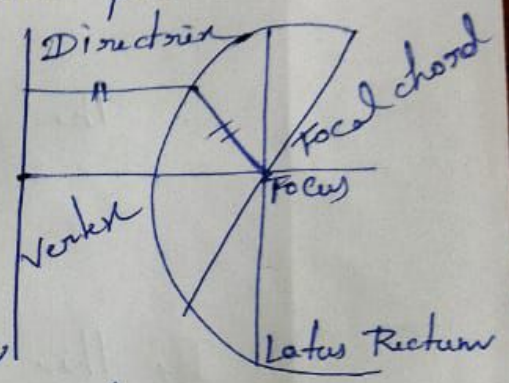 Directrix
Focal chord
Focus
Vertex
Latus Rectum